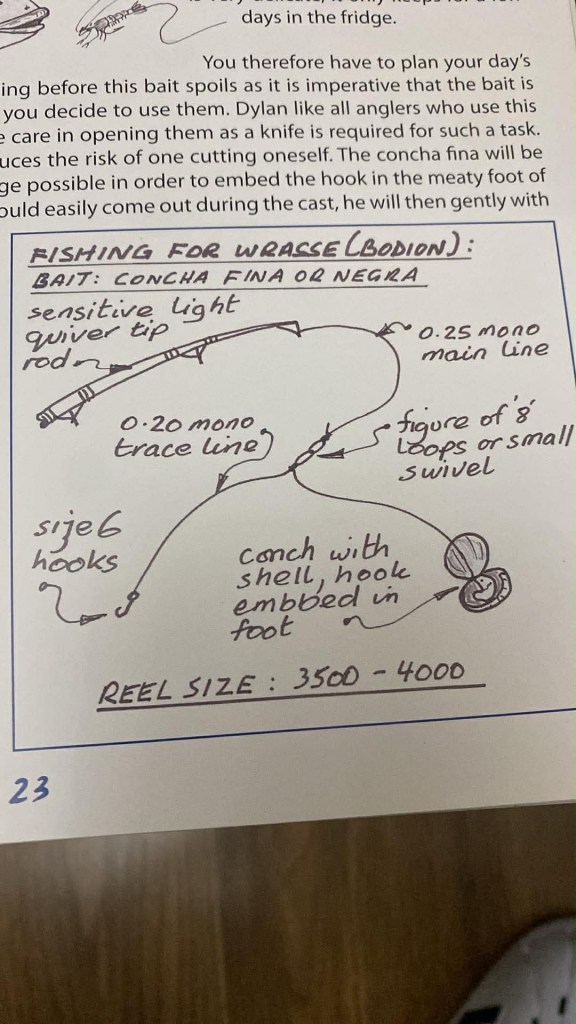 days in the fridge.
You therefore have to plan your day's
ing before this bait spoils as it is imperative that the bait is
you decide to use them. Dylan like all anglers who use this
care in opening them as a knife is required for such a task.
uces the risk of one cutting oneself. The concha fina will be
ge possible in order to embed the hook in the meaty foot of
ould easily come out during the cast, he will then gently with
FISHING FOR WRASSE (BODION):
BAIT: CONCHA FINA OR NEGRA
sensitive light
quiver tip
rod
0.25 mono
main line
0.20 mono
trace line
figure of '8'
loops or small
swivel
size 6
hooks
conch with
shell, hook
embbed in
foot
REEL SIZE: 3500 - 4000
23